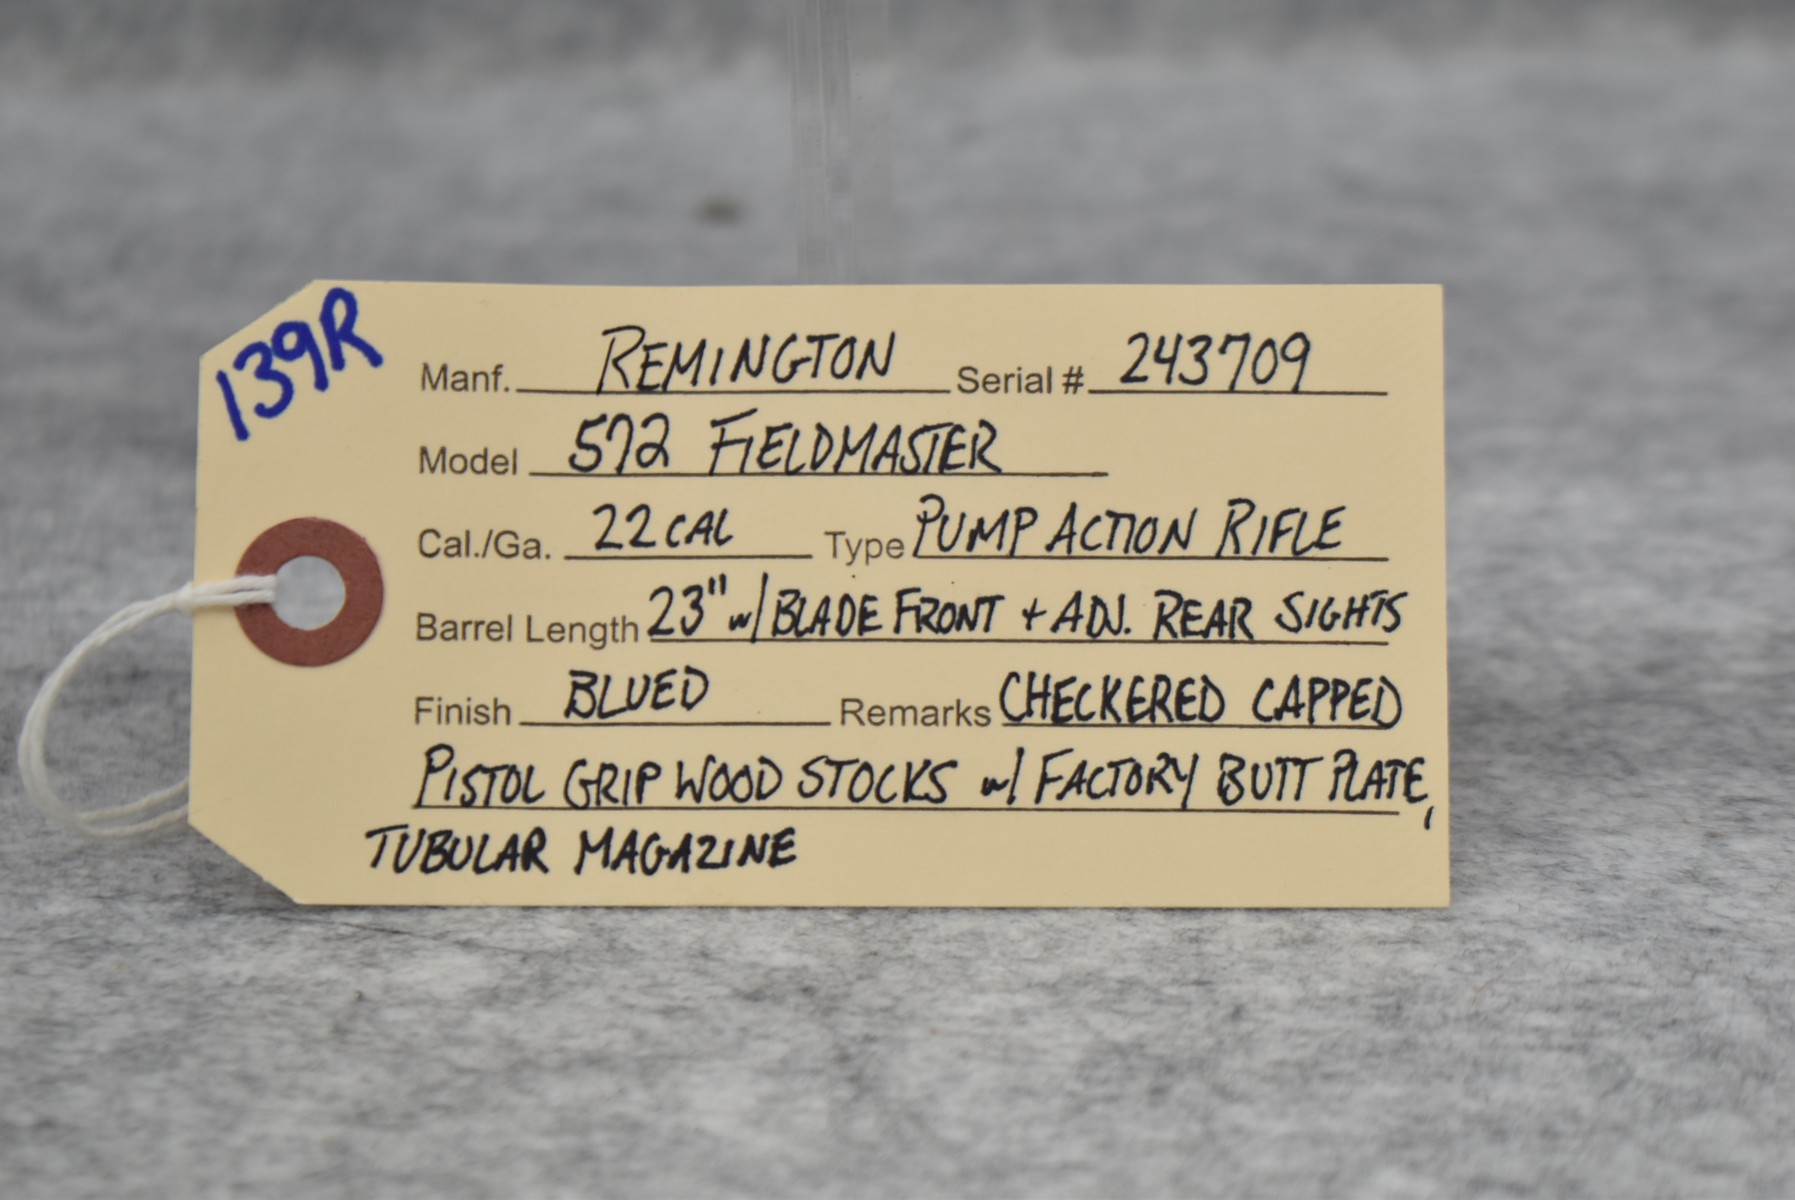 139R
Manf. REMINGTON Serial # 243709
Model 572 FIELDMASTER
Cal./Ga. 22 CAL Type PUMP ACTION RIFLE
Barrel Length 23" w/ BLADE FRONT + ADJ. REAR SIGHTS
Finish BLUED Remarks CHECKERED CAPPED
PISTOL GRIP WOOD STOCKS w/ FACTORY BUTT PLATE,
TUBULAR MAGAZINE